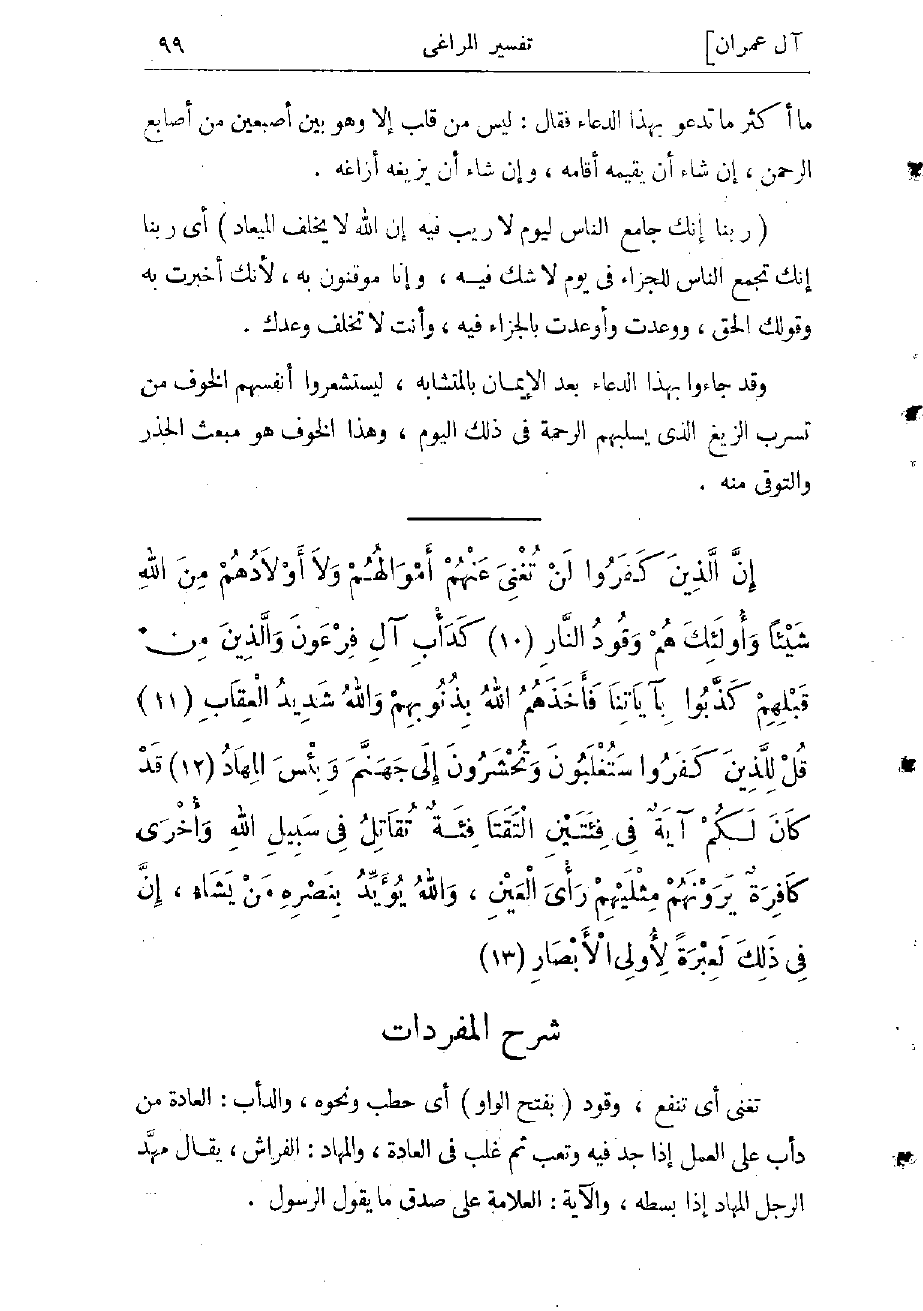 آل عمران] تفسير المراغى ٩٩
ما أكثر ما تدعو بهذا الدعاء فقال : ليس من قلب إلا وهو بين أصبعين من أصابع
الرحمن ، إن شاء أن يقيمه أقامه ، وإن شاء أن يزيغه أزاغه .
( ربنا إنك جامع الناس ليوم لا ريب فيه إن الله لا يخلف الميعاد ) أى ربنا
إنك تجمع الناس للجزاء فى يوم لا شك فيه ، وإنا موقنون به ، لأنك أخبرت به
وقولك الحق ، ووعدت وأوعدت بالجزاء فيه ، وأنت لا تخلف وعدك .
وقد جاءوا بهذا الدعاء بعد الإيمان بالمتشابه ، ليستشعروا أنفسهم الخوف من
تسرب الزيغ الذى يسلبهم الرحمة فى ذلك اليوم ، وهذا الخوف هو مبعث الحذر
والتوقى منه .
إِنَّ الَّذِينَ كَفَرُوا لَنْ تُغْنِىَ عَنْهُمْ أَمْوَالُهُمْ وَلَا أَوْلَادُهُمْ مِنَ اللهِ
شَيْئًا وَأُولَئِكَ هُمْ وَقُودُ النَّارِ (١٠) كَدَأْبِ آلِ فِرْعَوْنَ وَالَّذِينَ مِنْ
قَبْلِهِمْ كَذَّبُوا بِآيَاتِنَا فَأَخَذَهُمُ اللهُ بِذُنُوبِهِمْ وَاللهُ شَدِيدُ الْعِقَابِ (١١)
قُلْ لِلَّذِينَ كَفَرُوا سَتُغْلَبُونَ وَتُحْشَرُونَ إِلَى جَهَنَّمَ وَبِئْسَ الْمِهَادُ (١٢) قَدْ
كَانَ لَكُمْ آيَةٌ فِى فِئَتَيْنِ الْتَقَتَا فِئَةٌ تُقَاتِلُ فِى سَبِيلِ اللهِ وَأُخْرَى
كَافِرَةٌ يَرَوْنَهُمْ مِثْلَيْهِمْ رَأْىَ الْعَيْنِ ، وَاللهُ يُؤَيِّدُ بِنَصْرِهِ مَنْ يَشَاءُ ، إِنَّ
فِى ذَلِكَ لَعِبْرَةً لِأُولِى الْأَبْصَارِ (١٣)
شرح المفردات
تغنى أى تنفع ، وقود ( بفتح الواو ) أى حطب ونحوه ، والدأب : العادة من
دأب على العمل إذا جد فيه وتعب ثم غلب فى العادة ، والمهاد : الفراش ، يقال مهَّد
الرجل المهاد إذا بسطه ، والآية : العلامة على صدق ما يقول الرسول .